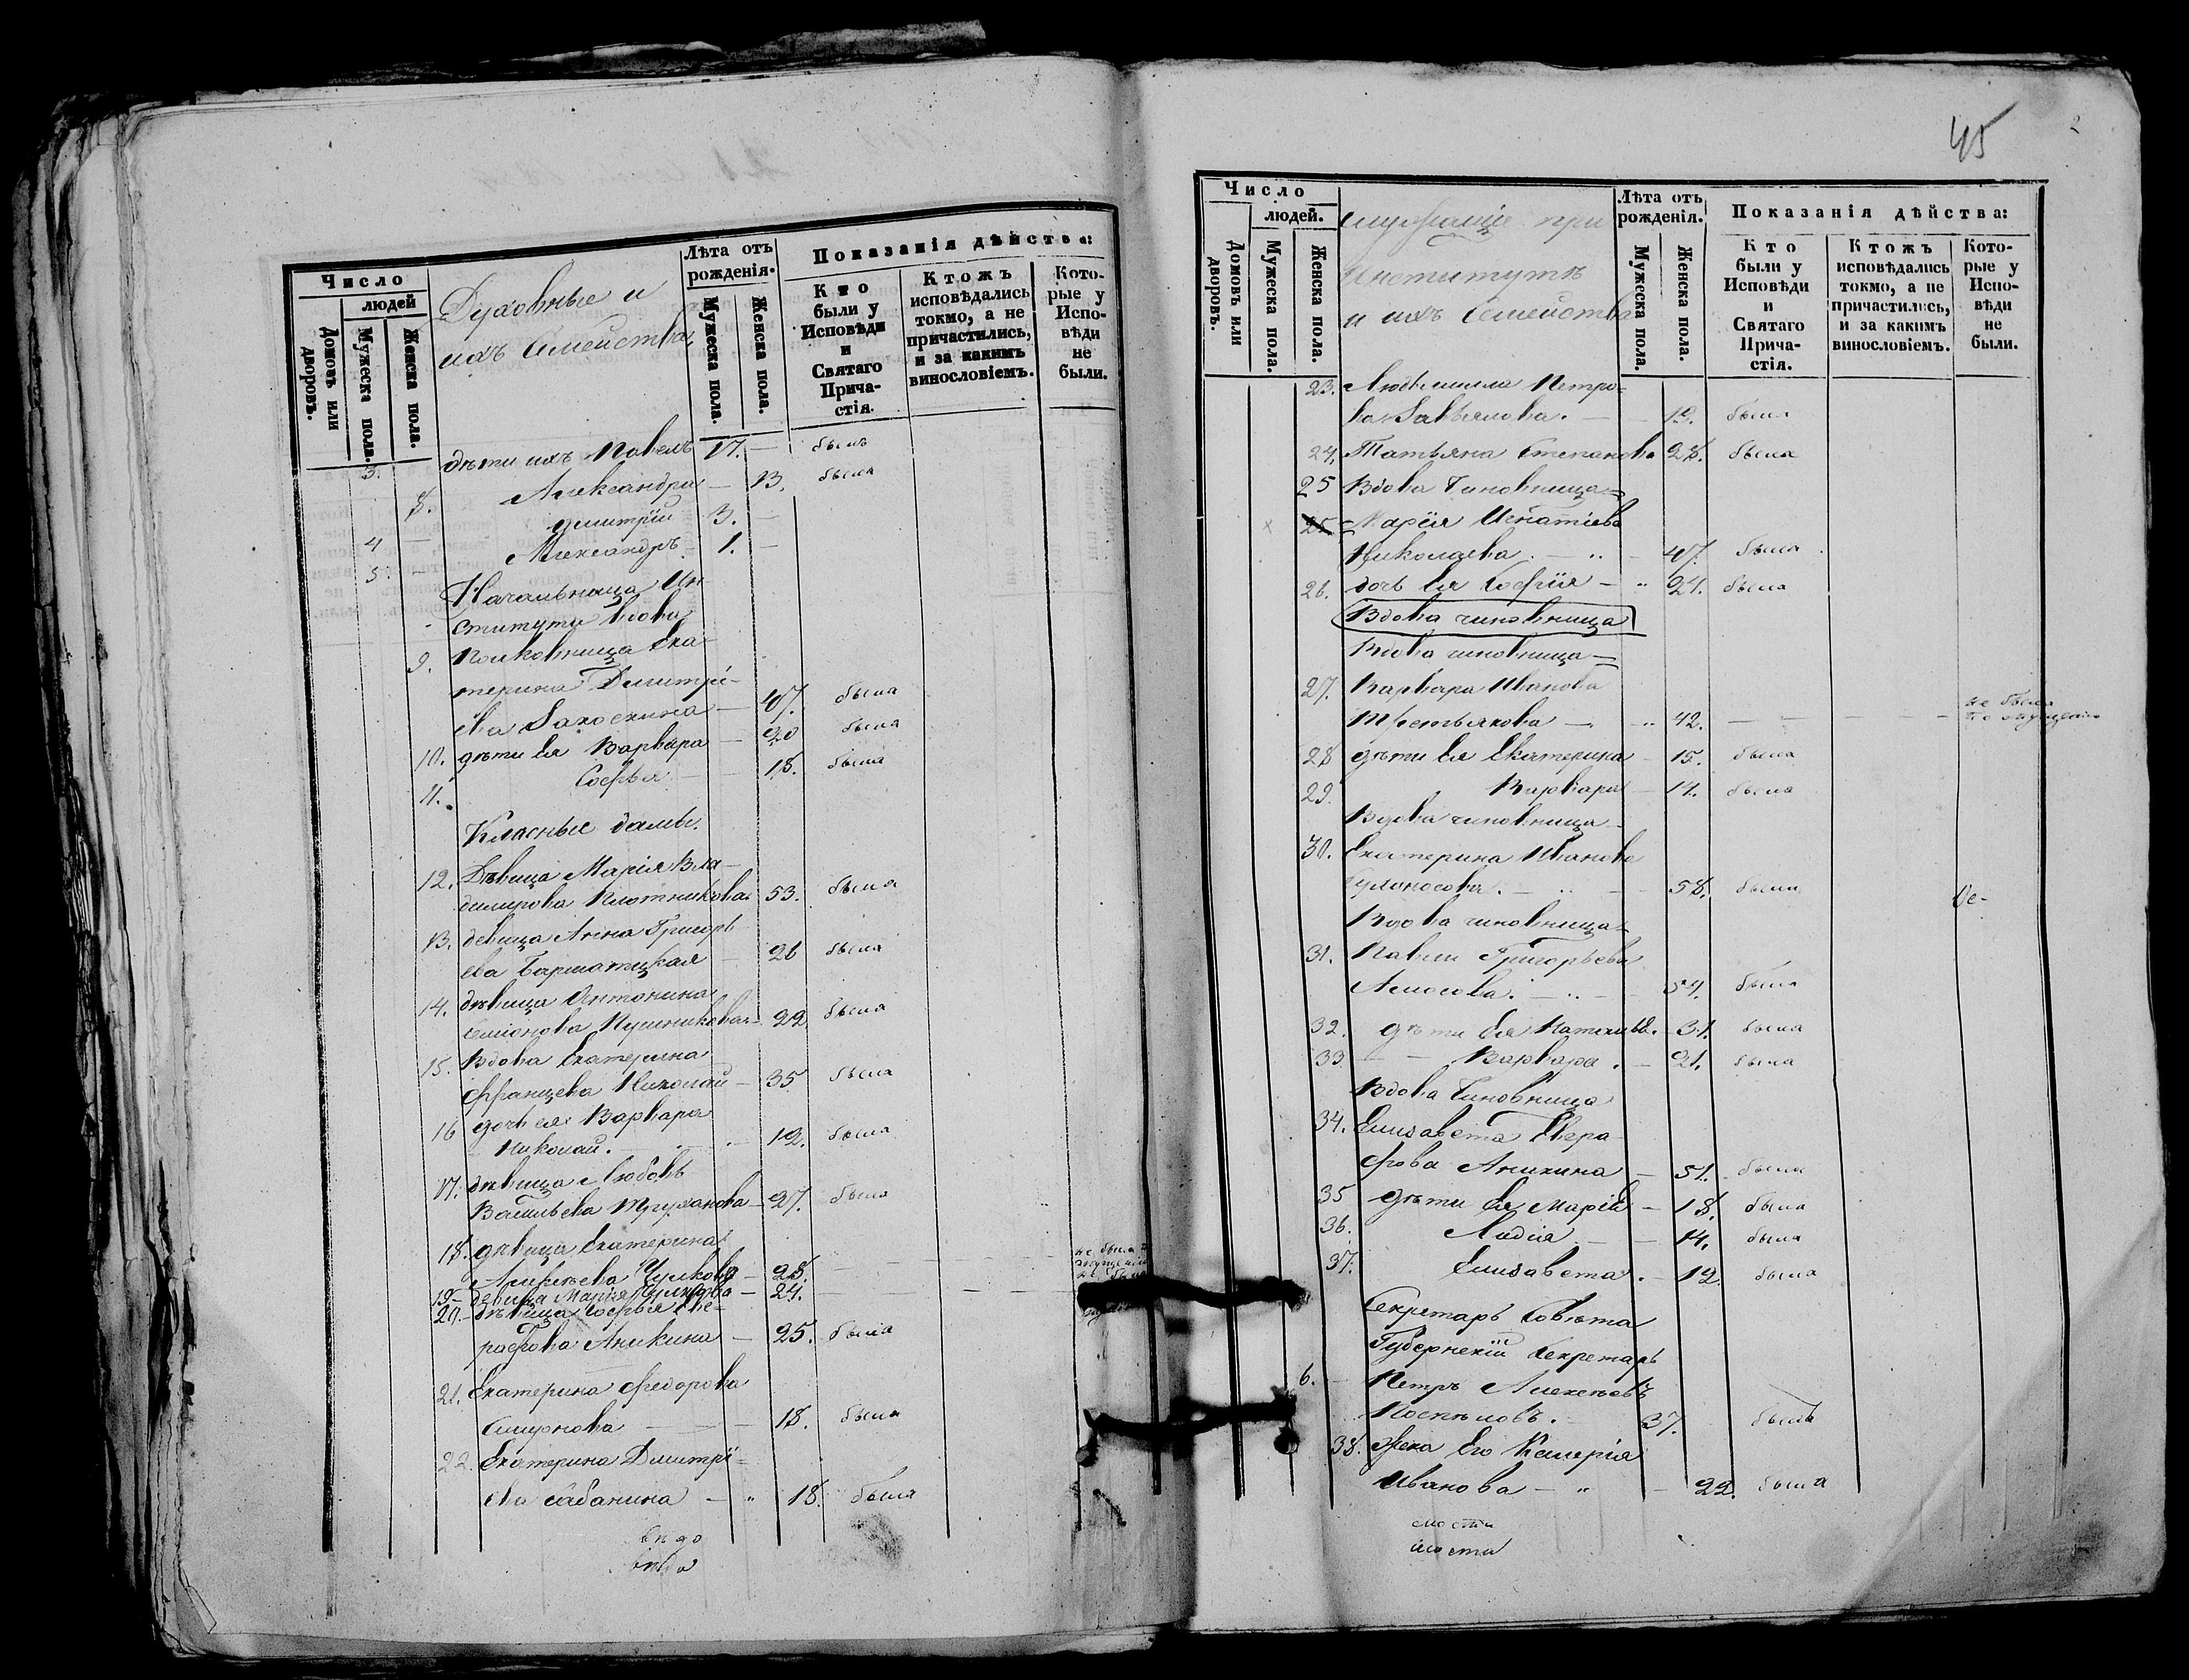 Число
людей
Домовъ или дворовъ.
Мужеска пола.
Женска пола.
Духовные и
ихъ Семейства
Лѣта отъ рожденія.
Мужеска пола.
Женска пола.
Показанія дѣйства:
Кто были у Исповѣди и Святаго Причастія.
Ктожъ исповѣдались токмо, а не причастились, и за какимъ винословіемъ.
Которые у Исповѣди не были.
3. дѣти ихъ Павелъ 17. — былъ
8. Александра — 13. была
4 — Димитрій 3. —
5. — Александръ 1. —
Начальница Ин
ститута вдова
9. Полковница Ека
терина Димитрі-
ева — 47. была
10. дѣти Ея Варвара — 20 была
11. Софья — 18. была
Класные дамы.
12. Дѣвица Марія Вла-
димирова Плотникова 53. была
13. девица Анна Григорь
ева — 26 была
14. дѣвица Антонина
22 была
15. Вдова Екатерина
Францева Николай — 35 была
16 дочь ея Варвара
Николай. — 12. была
17. дѣвица Любовь
Васильева — 27. была
18. дѣвица Екатерина
Алексѣева Чулкова — 28. —
19 — девица Марія Чулкова — 24. —
20. — дѣвица Софья Ев-
графова Аникина — 25. была
21. Екатерина Федорова
Смирнова — 18. была
22. Екатерина Димитрі-
ева Сабанина — " 18. была
вѣдо
вѣдо
45
Число
людей.
Домовъ или дворовъ.
Мужеска пола.
Женска пола.
служащіе при
Институтѣ
и ихъ Семейства
Лѣта отъ рожденія.
Мужеска пола.
Женска пола.
Показанія дѣйства:
Кто были у Исповѣди и Святаго Причастія.
Ктожъ исповѣдались токмо, а не причастились, и за какимъ винословіемъ.
Которые у Исповѣди не были.
23. Людмила Петро-
ва Завьялова. — 19. была
24. Татьяна Степанова 28. была
25 Вдова Чиновница =
25 Марія Игнатіева
Николаева. — 47. была
26. дочь Ея Софія — " 21. была
Вдова чиновница
Вдова чиновница =
27. Варвара Иванова
Третьякова — " 42. — не была
28 дѣти Ея Екатерина — 15. была
29. Варвара — 14. была
Вдова чиновница —
30. Екатерина Иванова
— 58. была
Вдова чиновница =
31. Павла Григорьева
Амосова. — 54. была
32. дѣти Ея — 31. была
33 — Варвара. — 21. была
Вдова Чиновница
34. Елизавета Евгра-
фова Аникина — 51. была
35 дѣти Ея Марія — 18. была
36. Лидія — 14. была
37. Елизавета. — 12. была
Секретарь Совѣта
Губернскій Секретарь
6. — Петръ Алексѣевъ
Поспѣловъ. — 37. былъ
38. Жена Его Валерія
Иванова — " — 22. была
мости
мости